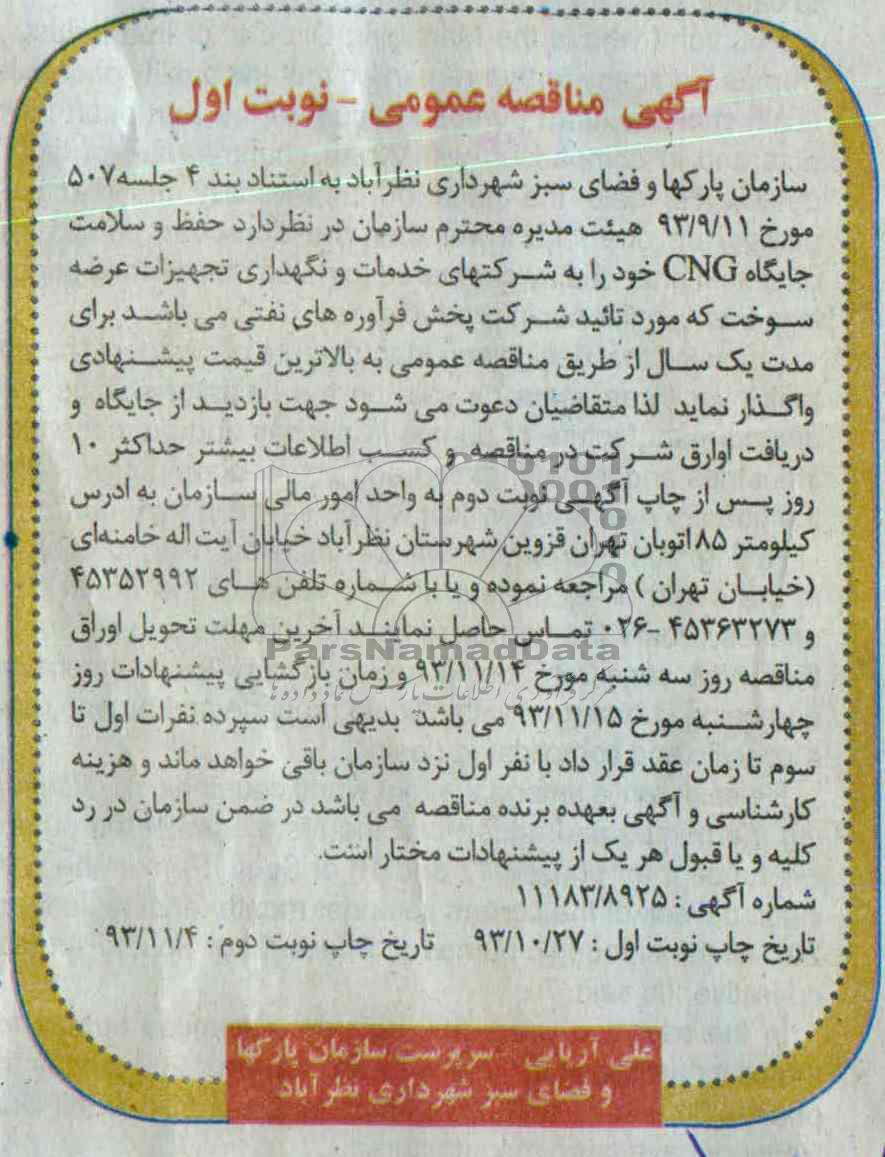 آگهی مناقصه عمومی - نوبت اول
سازمان پارکها و فضای سبز شهرداری نظرآباد به استناد بند ۴ جلسه ۵۰۷
مورخ ۹۳/۹/۱۱ هیئت مدیره محترم سازمان در نظردارد حفظ و سلامت
جایگاه CNG خود را به شرکتهای خدمات و نگهداری تجهیزات عرضه
سوخت که مورد تائید شرکت پخش فرآورده های نفتی می باشد برای
مدت یک سال از طریق مناقصه عمومی به بالاترین قیمت پیشنهادی
واگذار نماید لذا متقاضیان دعوت می شود جهت بازدید از جایگاه و
دریافت اوارق شرکت در مناقصه و کسب اطلاعات بیشتر حداکثر ۱۰
روز پس از چاپ آگهی نوبت دوم به واحد امور مالی سازمان به ادرس
کیلومتر ۸۵ اتوبان تهران قزوین شهرستان نظرآباد خیابان آیت اله خامنه‌ای
(خیابان تهران ) مراجعه نموده و یا با شماره تلفن های ۴۵۳۵۲۹۹۲
و ۴۵۳۶۳۲۷۳ -۰۲۶ تماس حاصل نمایند آخرین مهلت تحویل اوراق
ParsNamadData
مناقصه روز سه شنبه مورخ ۹۳/۱۱/۱۴ و زمان بازگشایی پیشنهادات روز
چهارشنبه مورخ ۹۳/۱۱/۱۵ می باشد بدیهی است سپرده نفرات اول تا
سوم تا زمان عقد قرار داد با نفر اول نزد سازمان باقی خواهد ماند و هزینه
کارشناسی و آگهی بعهده برنده مناقصه می باشد در ضمن سازمان در رد
کلیه و یا قبول هر یک از پیشنهادات مختار است.
شماره آگهی : ۱۱۱۸۳/۸۹۲۵
تاریخ چاپ نوبت اول : ۹۳/۱۰/۲۷ تاریخ چاپ نوبت دوم : ۹۳/۱۱/۴
علی آریایی - سرپرست سازمان پارکها
و فضای سبز شهرداری نظرآباد